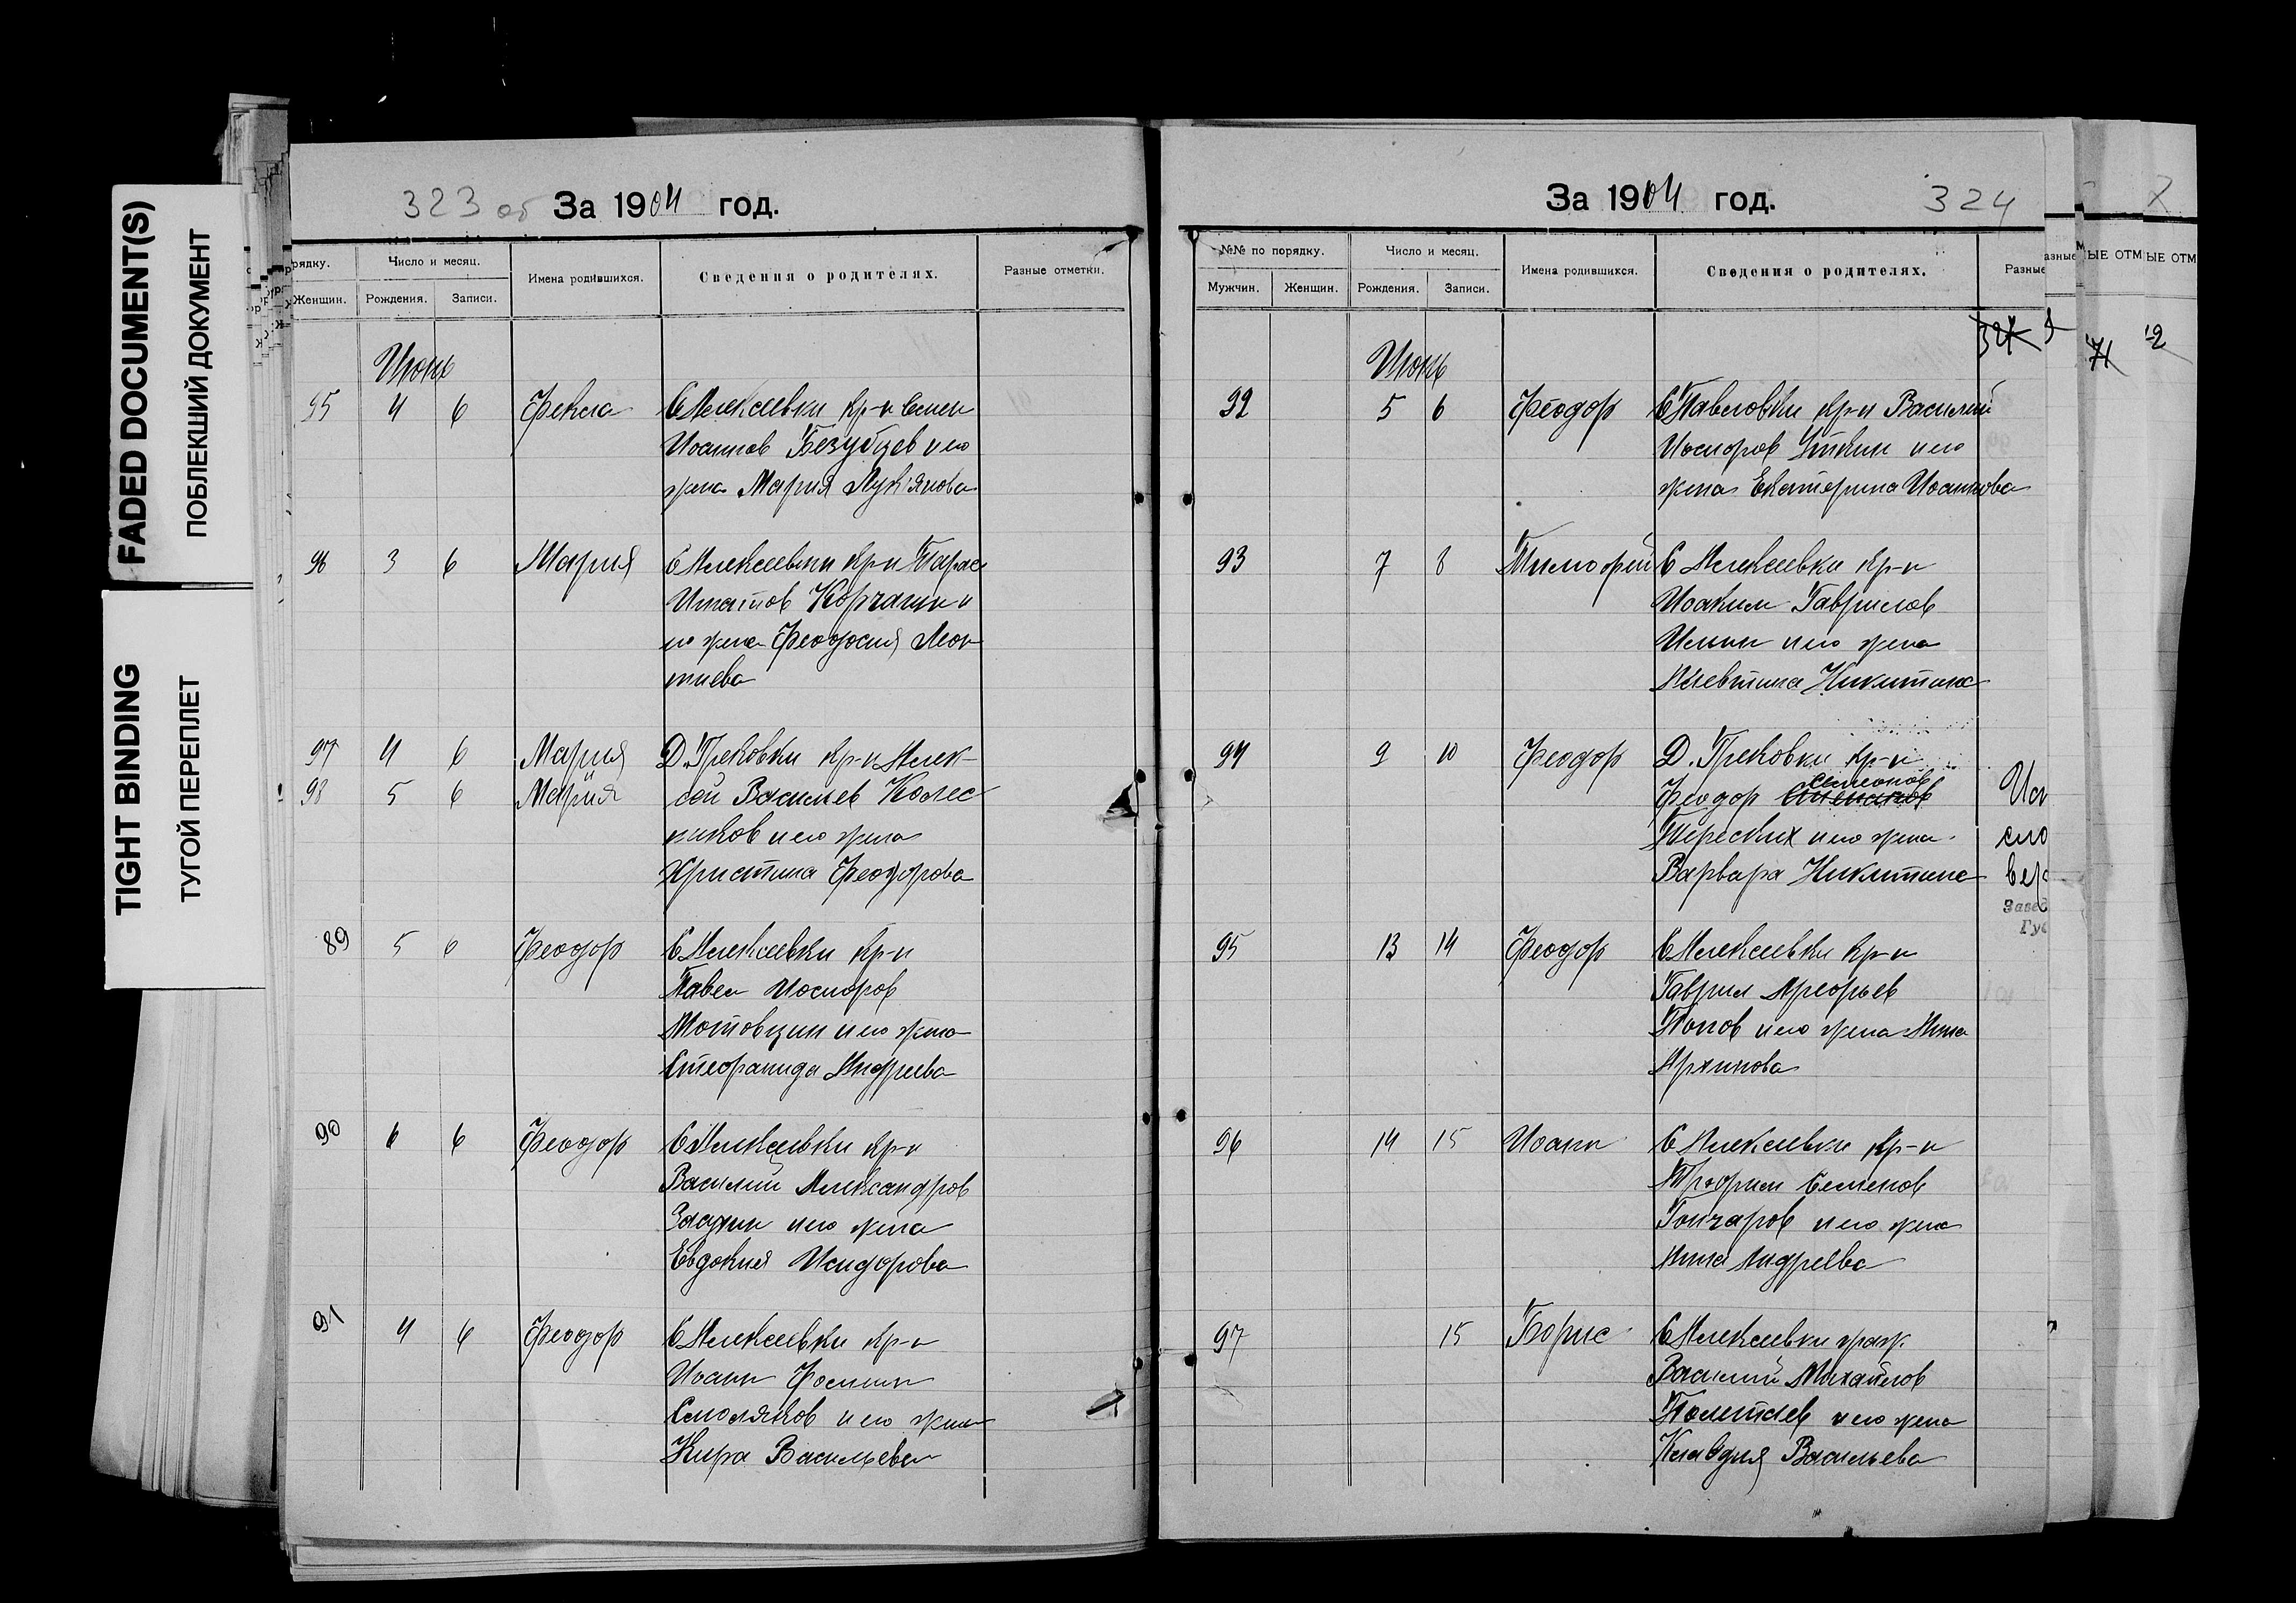 FADED DOCUMENT(S)
ПОБЛЕКШИЙ ДОКУМЕНТ
TIGHT BINDING
ТУГОЙ ПЕРЕПЛЕТ
323 об За 1904 год.
рядку. Число и месяц. Имена родившихся. Сведения о родителях. Разные отметки.
Женщин. Рождения. Записи.
Июнь
95 4 6 Фекла С Алексеевки кр-н Семен
Иоаннов Безубцев и его
жена Мария Лукъянова
96 3 6 Мария С Алексеевки кр-н Тарас
Игнатов Корчагин и
его жена Феодосия Леон
тиева
97 4 6 Мария Д. Грековки кр-н Алек-
98 5 6 Мария сей Васильев Колес
ников и его жена
Христина Феодорова
89 5 6 Феодор С Алексеевки кр-н
Павел Иосифов
Мотовцин и его жена
Стефанида Андреева
90 6 6 Феодор С Алексеевки кр-н
Василий Александров
и его жена
Евдокия Исидорова
91 4 6 Феодор С Алексеевки кр-н
Иоанн Фомин
Смоляков и его жена
Кира Васильева
За 1904 год. 324
№№ по порядку. Число и месяц. Имена родившихся. Сведения о родителях. Разные
Мужчин. Женщин. Рождения. Записи.
Июнь
92 5 6 Феодор С Павловки кр-н Василий
Иосифов Уткин и его
жена Екатерина Иоаннова
93 7 8 Тимофей С Алексеевки кр-н
Иоаким Гаврилов
Ильин и его жена
Алевтина Никитина
94 9 10 Феодор Д. Грековки кр-н
Симеонов
Феодор Степанов
и его жена
Варвара Никитина
Заве
Гу
95 13 14 Феодор С Алексеевки кр-н
Гаврил Арефьев
Попов и его жена Анна
Архипова
96 14 15 Иоанн С Алексеевки кр-н
Трофим Семенов
Гончаров и его жена
Анна Андреева
97 15 Борис С Алексеевки граж.
Василий Михайлов
Полетаев и его жена
Клавдия Васильева
ЫЕ ОТМ ЫЕ ОТМ